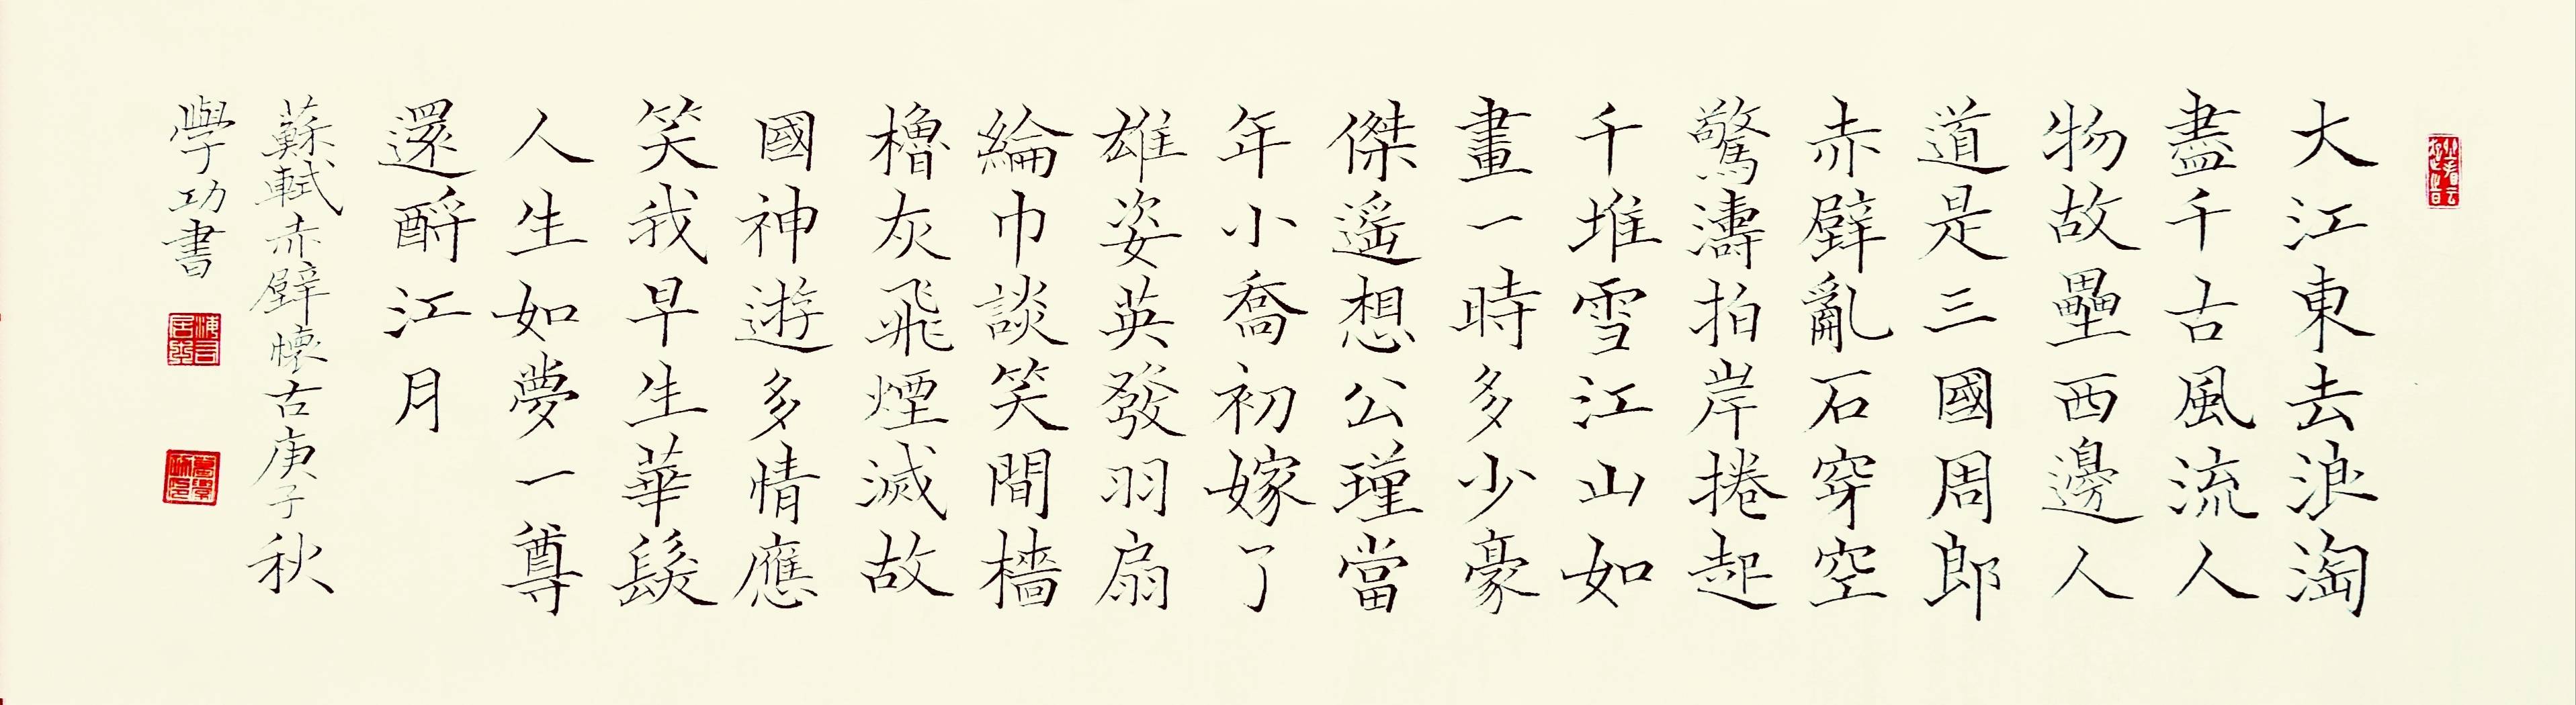 大江東去浪淘
盡千古風流人
物故壘西邊人
道是三國周郎
赤壁亂石穿空
驚濤拍岸捲起
千堆雪江山如
畫一時多少豪
傑遙想公瑾當
年小喬初嫁了
雄姿英發羽扇
綸巾談笑間檣
櫓灰飛煙滅故
國神遊多情應
笑我早生華髮
人生如夢一尊
還酹江月
蘇軾赤壁懷古庚子秋
學功書